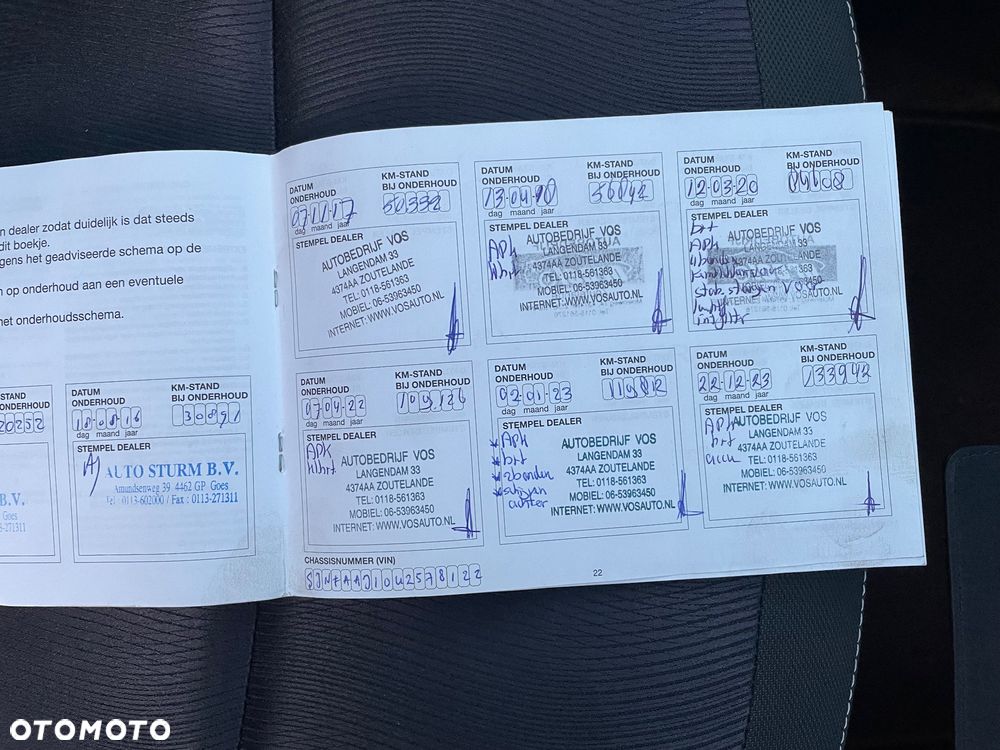 n dealer zodat duidelijk is dat steeds
dit boekje.
gens het geadviseerde schema op de
n op onderhoud aan een eventuele
het onderhoudsschema.
KM-STAND
ONDERHOUD
20252
B.V.
Goes
3-271311
DATUM
ONDERHOUD
KM-STAND
BIJ ONDERHOUD
18-08-16
30891
dag maand jaar
STEMPEL DEALER
AUTO STURM B.V.
Amundsenweg 39 4462 GP Goes
Tel : 0113-602000 / Fax : 0113-271311
DATUM
ONDERHOUD
KM-STAND
BIJ ONDERHOUD
50332
dag maand jaar
STEMPEL DEALER
AUTOBEDRIJF VOS
LANGENDAM 33
4374AA ZOUTELANDE
TEL: 0118-561363
MOBIEL: 06-53963450
INTERNET: WWW.VOSAUTO.NL
DATUM
ONDERHOUD
KM-STAND
BIJ ONDERHOUD
dag maand jaar
STEMPEL DEALER
APk
AUTOBEDRIJF VOS
LANGENDAM 33
4374AA ZOUTELANDE
TEL: 0118-561363
MOBIEL: 06-53963450
INTERNET: WWW.VOSAUTO.NL
DATUM
ONDERHOUD
KM-STAND
BIJ ONDERHOUD
12-03-20
dag maand jaar
STEMPEL DEALER
brt
APk
AUTOBEDRIJF VOS
LANGENDAM 33
4374AA ZOUTELANDE
363
INTERNET: WWW.VOSAUTO.NL
DATUM
ONDERHOUD
KM-STAND
BIJ ONDERHOUD
07-04-22
109.126
dag maand jaar
STEMPEL DEALER
APk
AUTOBEDRIJF VOS
LANGENDAM 33
4374AA ZOUTELANDE
TEL: 0118-561363
MOBIEL: 06-53963450
INTERNET: WWW.VOSAUTO.NL
DATUM
ONDERHOUD
KM-STAND
BIJ ONDERHOUD
02-01-23
119812
dag maand jaar
STEMPEL DEALER
APk
brt
2banden
achter
AUTOBEDRIJF VOS
LANGENDAM 33
4374AA ZOUTELANDE
TEL: 0118-561363
MOBIEL: 06-53963450
INTERNET: WWW.VOSAUTO.NL
DATUM
ONDERHOUD
KM-STAND
BIJ ONDERHOUD
22-12-23
133942
dag maand jaar
STEMPEL DEALER
APk
brt
AUTOBEDRIJF VOS
LANGENDAM 33
4374AA ZOUTELANDE
TEL: 0118-561363
MOBIEL: 06-53963450
INTERNET: WWW.VOSAUTO.NL
CHASSISNUMMER (VIN)
SJNFAAJ10U2578122
22
OTOMOTO